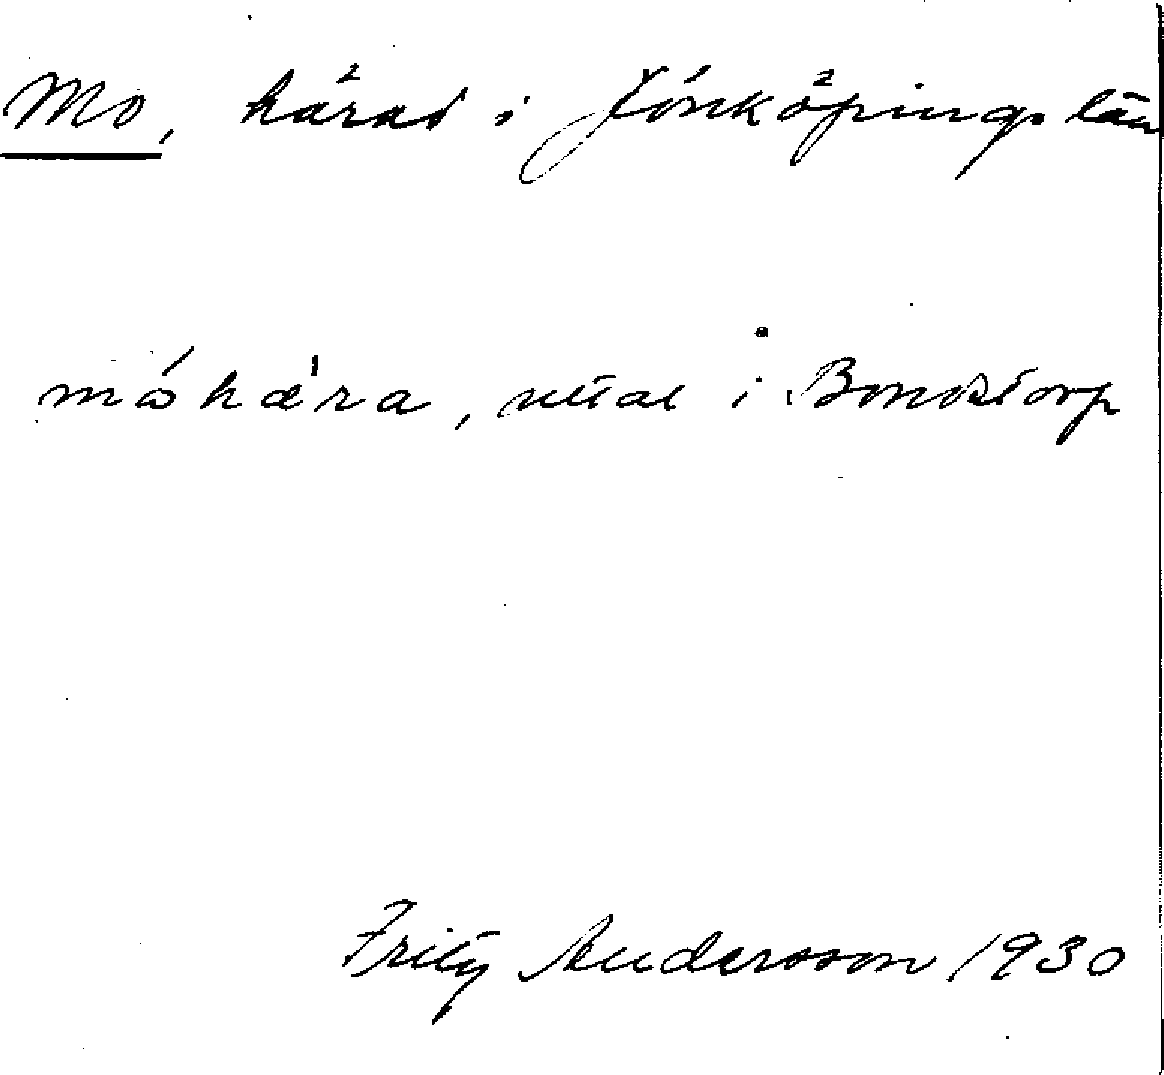 Mo, härad i Jönköpings län
móhæ̀ra, uttal i Bondstorp
Fritz Andersson 1930